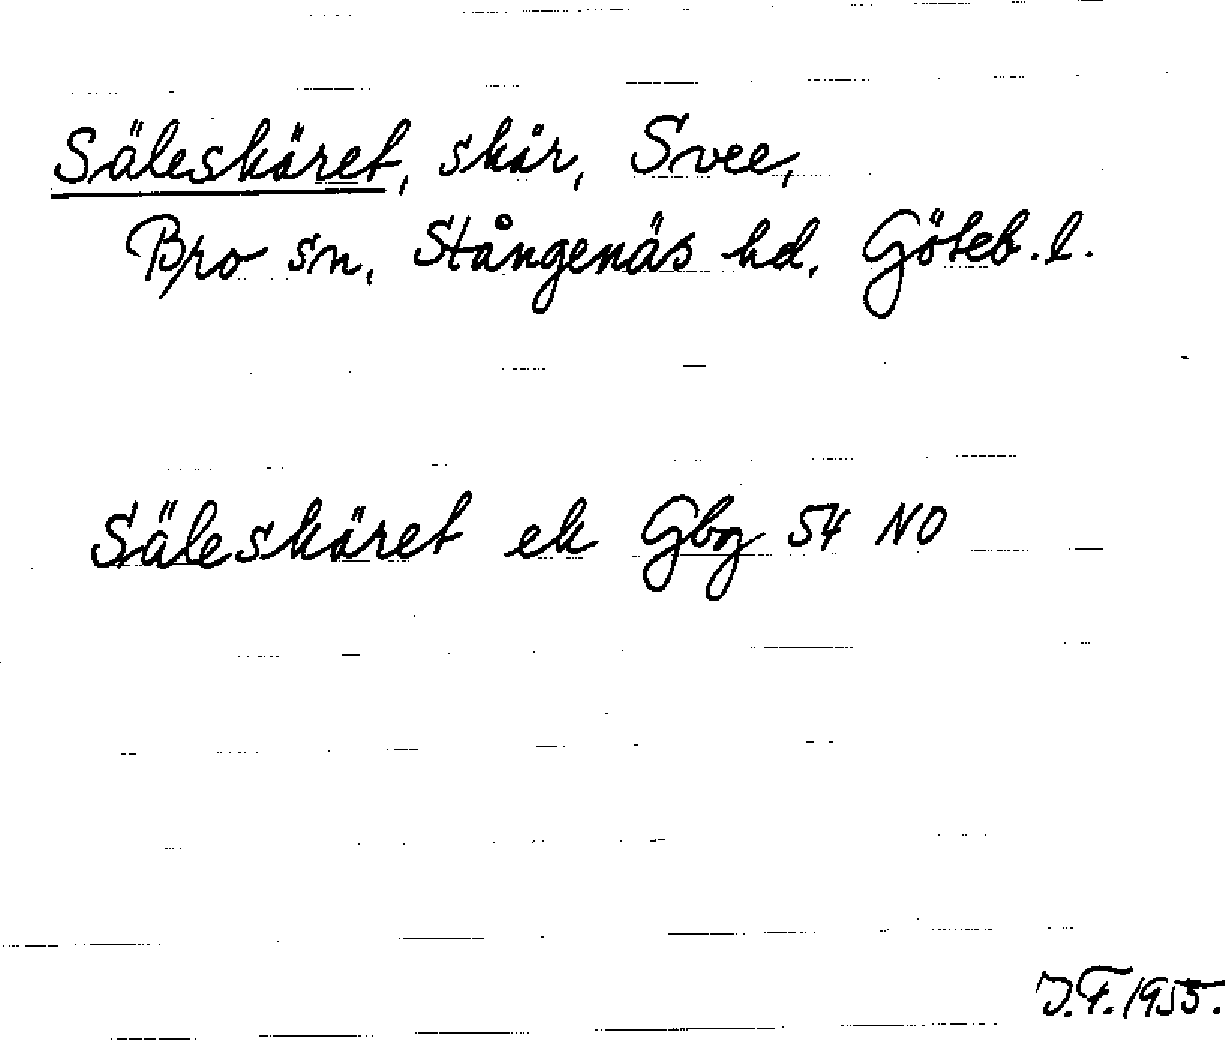 Säleskäret, skär, Svee,
Bro sn, Stångenäs hd, Göteb. l.
Säleskäret ek Gbg 54 NO
J.F. 1955.